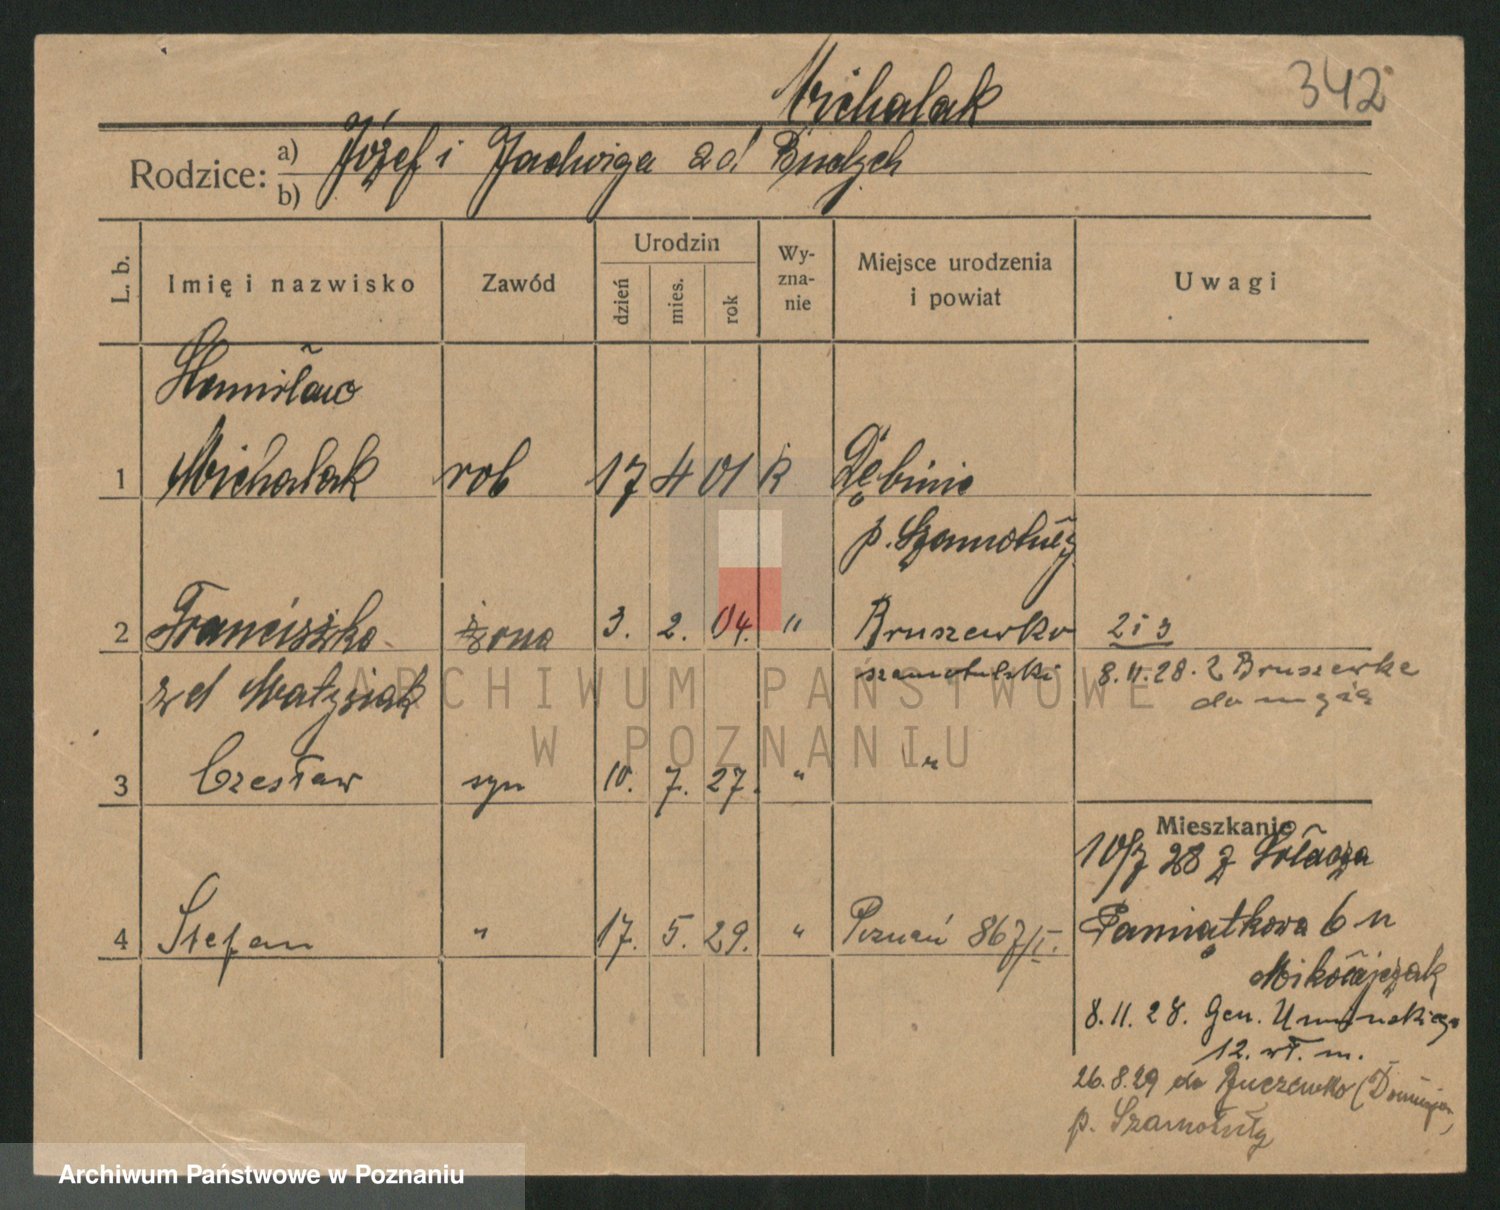 342
Michalak
Rodzice: a) Józef i Jadwiga zd
b)
L. b.
Imię i nazwisko
Zawód
Urodzin
dzień
mies.
rok
Wy-
zna-
nie
Miejsce urodzenia
i powiat
Uwagi
Stanisław
1 Michalak rob 17 4 01 k Dębina
p. Szamotuły
2 Franciszka żona 3. 2. 04. " Bruszewko 2 i 3
zd Matysiak szamotulski 8.11.28. z Bruszewka
do męża
3 Czesław syn 10. 7. 27. " "
Mieszkanie
10/7 28 z Sołacza
4 Stefan " 17. 5. 29. " Poznań 867/I.
Pamiątkowa 6 n
Mikołajczak
8.11.28. Gen. Umińskiego
12. wł. m.
26.8.29 do
p. Szamotuły
ARCHIWUM PAŃSTWOWE
W POZNANIU
Archiwum Państwowe w Poznaniu